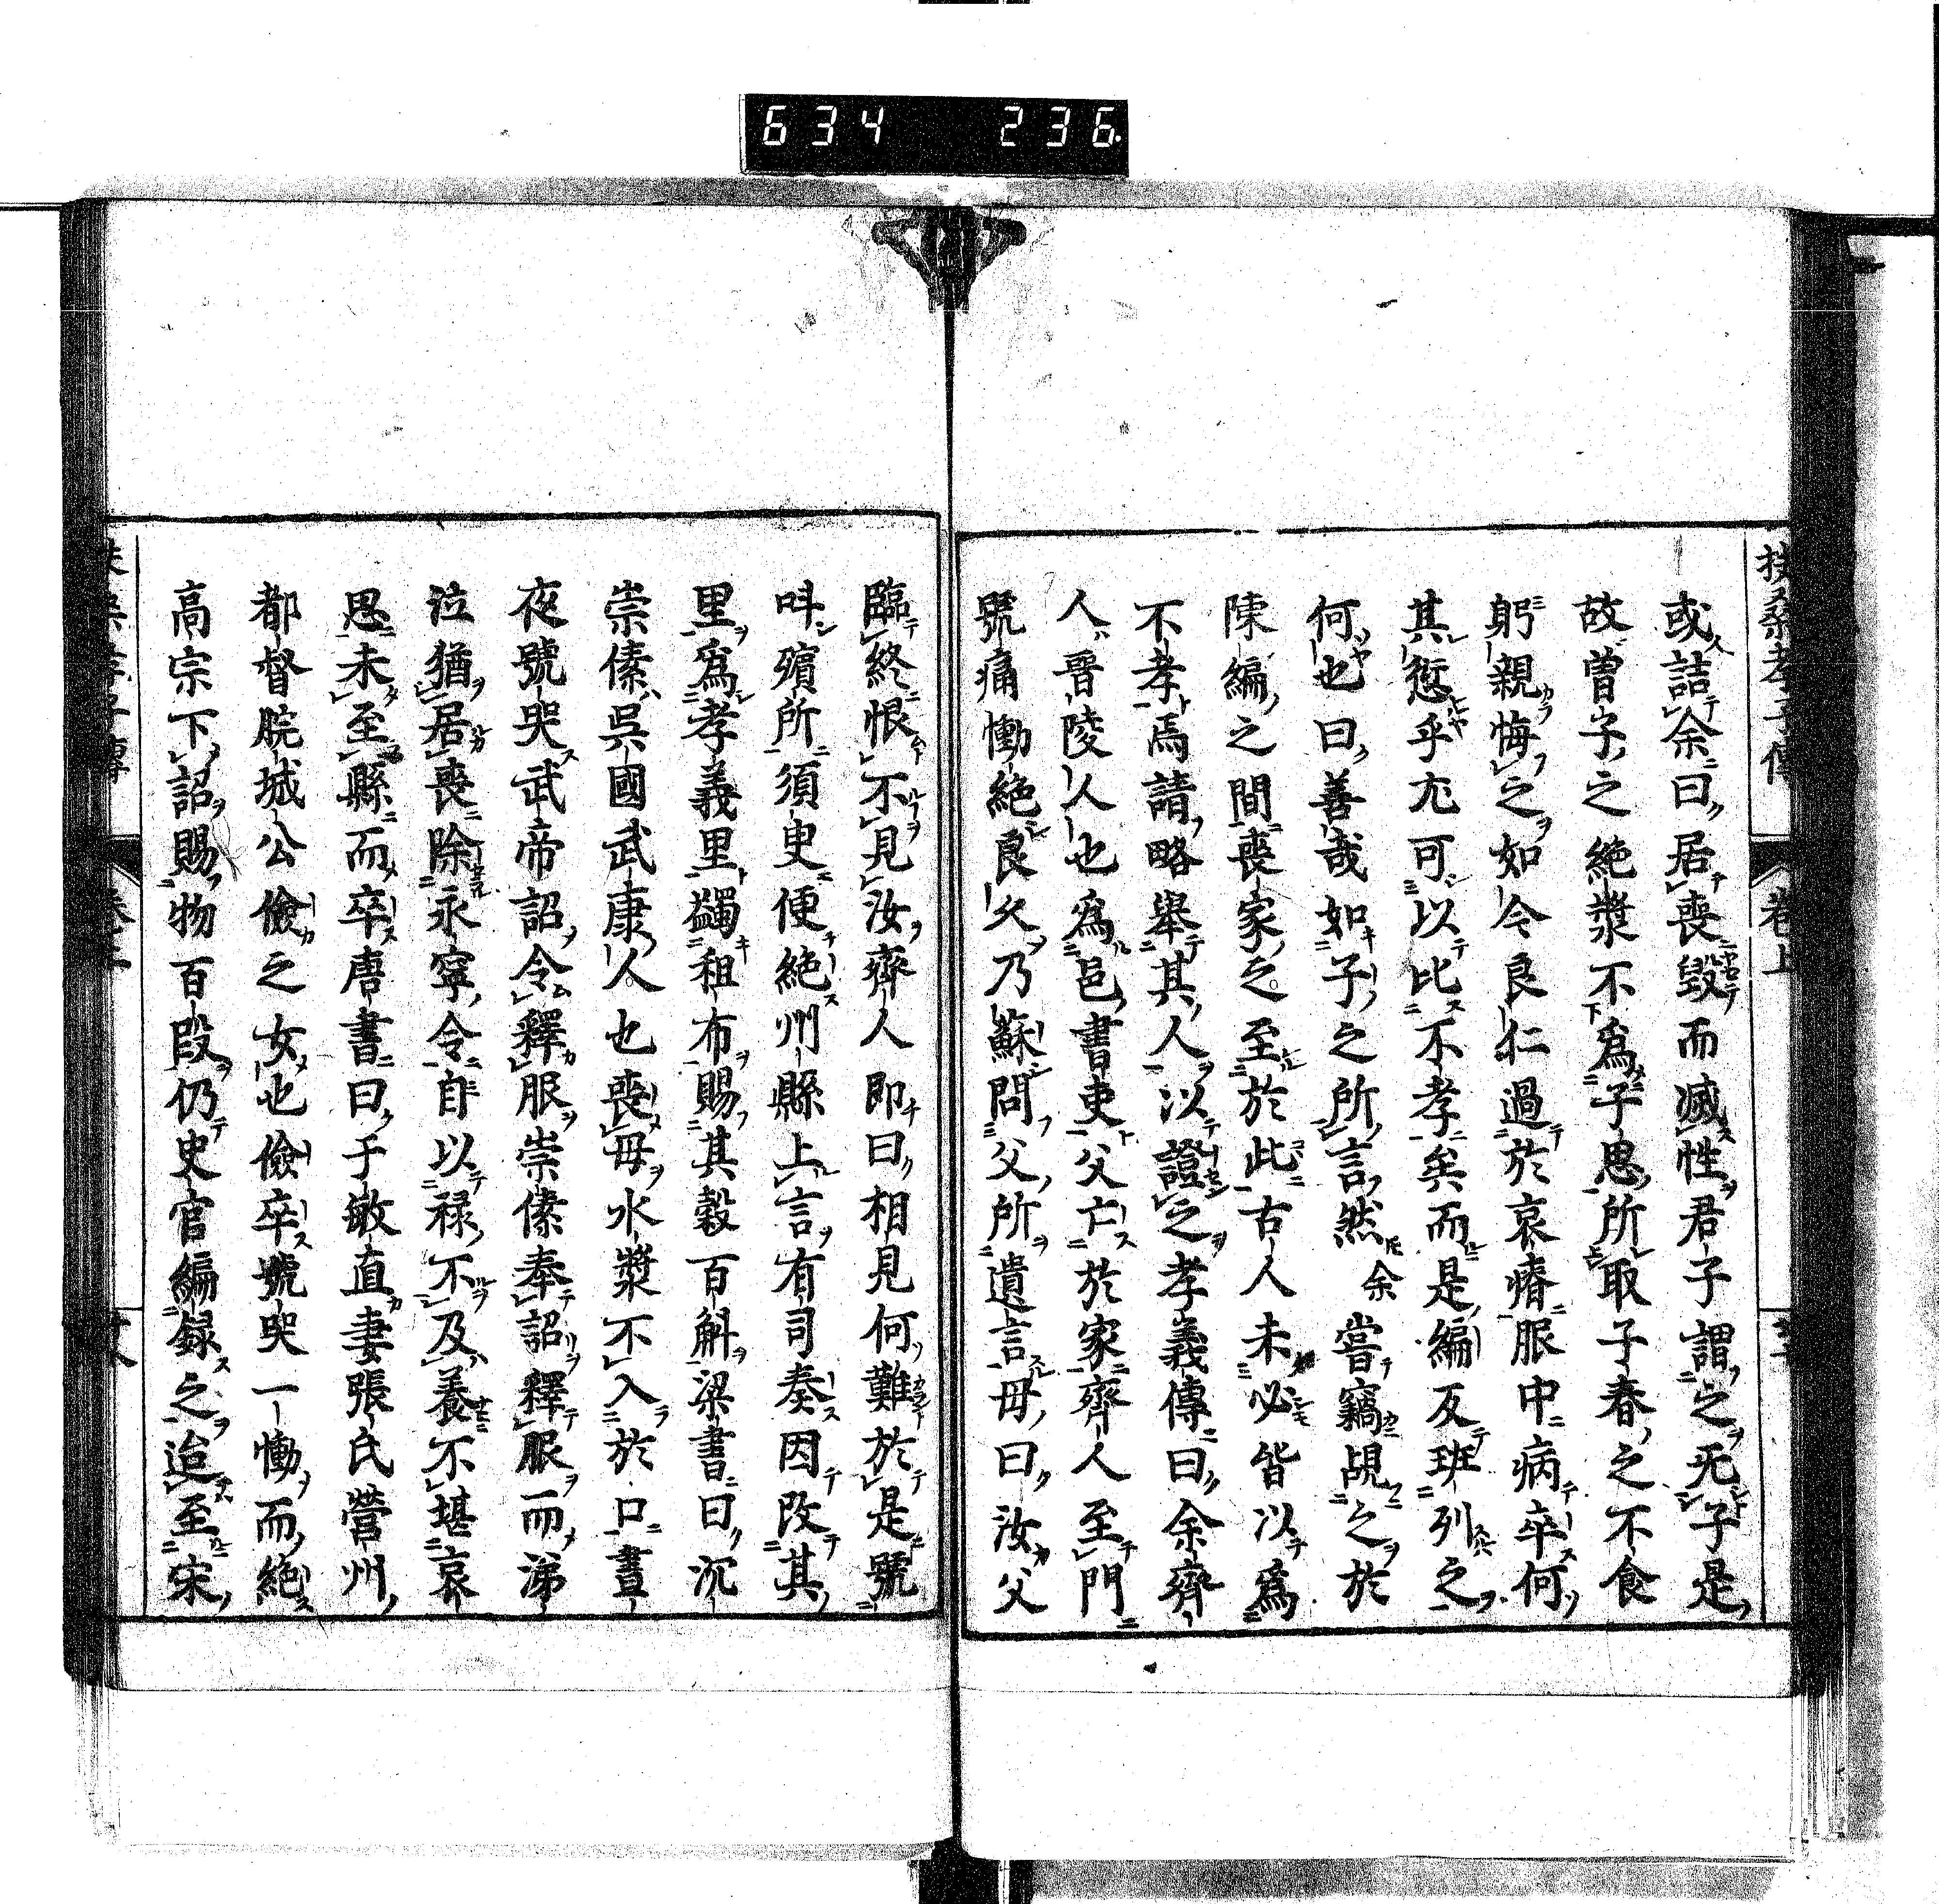 634 236
扶桑孝子傳 卷上
或詰余曰居喪毀而滅性君子謂之无子是
故曾子之絕漿不爲子思所取子春之不食
躬親悔之如今良仁過於哀瘠服中病卒何
其愆乎尤可以比不孝矣而是編反班列之
何也曰善哉如子之所言然余嘗竊覘之於
陳編之間喪家之至於此古人未必皆以爲
不孝焉請略舉其人以證之孝義傳曰余齊
人晋陵人也爲邑書吏父亡於家齊人至門
號痛慟絕良久乃蘇問父所遺言母曰汝父
臨終恨不見汝齊人即曰相見何難於是號
叫殯所須臾便絕州縣上言有司奏因改其
里爲孝義里蠲租布賜其穀百斛梁書曰沉
崇傃吳國武康人也喪母水漿不入於口晝
夜號哭武帝詔令釋服崇傃奉詔釋服而涕
泣猶居喪除永寧令自以祿不及養不堪哀
思未至縣而卒唐書曰于敏直妻張氏營州
都督脘城公儉之女也儉卒號哭一慟而絕
高宗下詔賜物百段仍史官編録之迨至宋